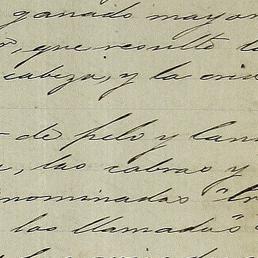 ganado mayor
, que resultó
cabeza, y la cria
de pelo y lana
, las cabras y
nominadas "
las llamadas"